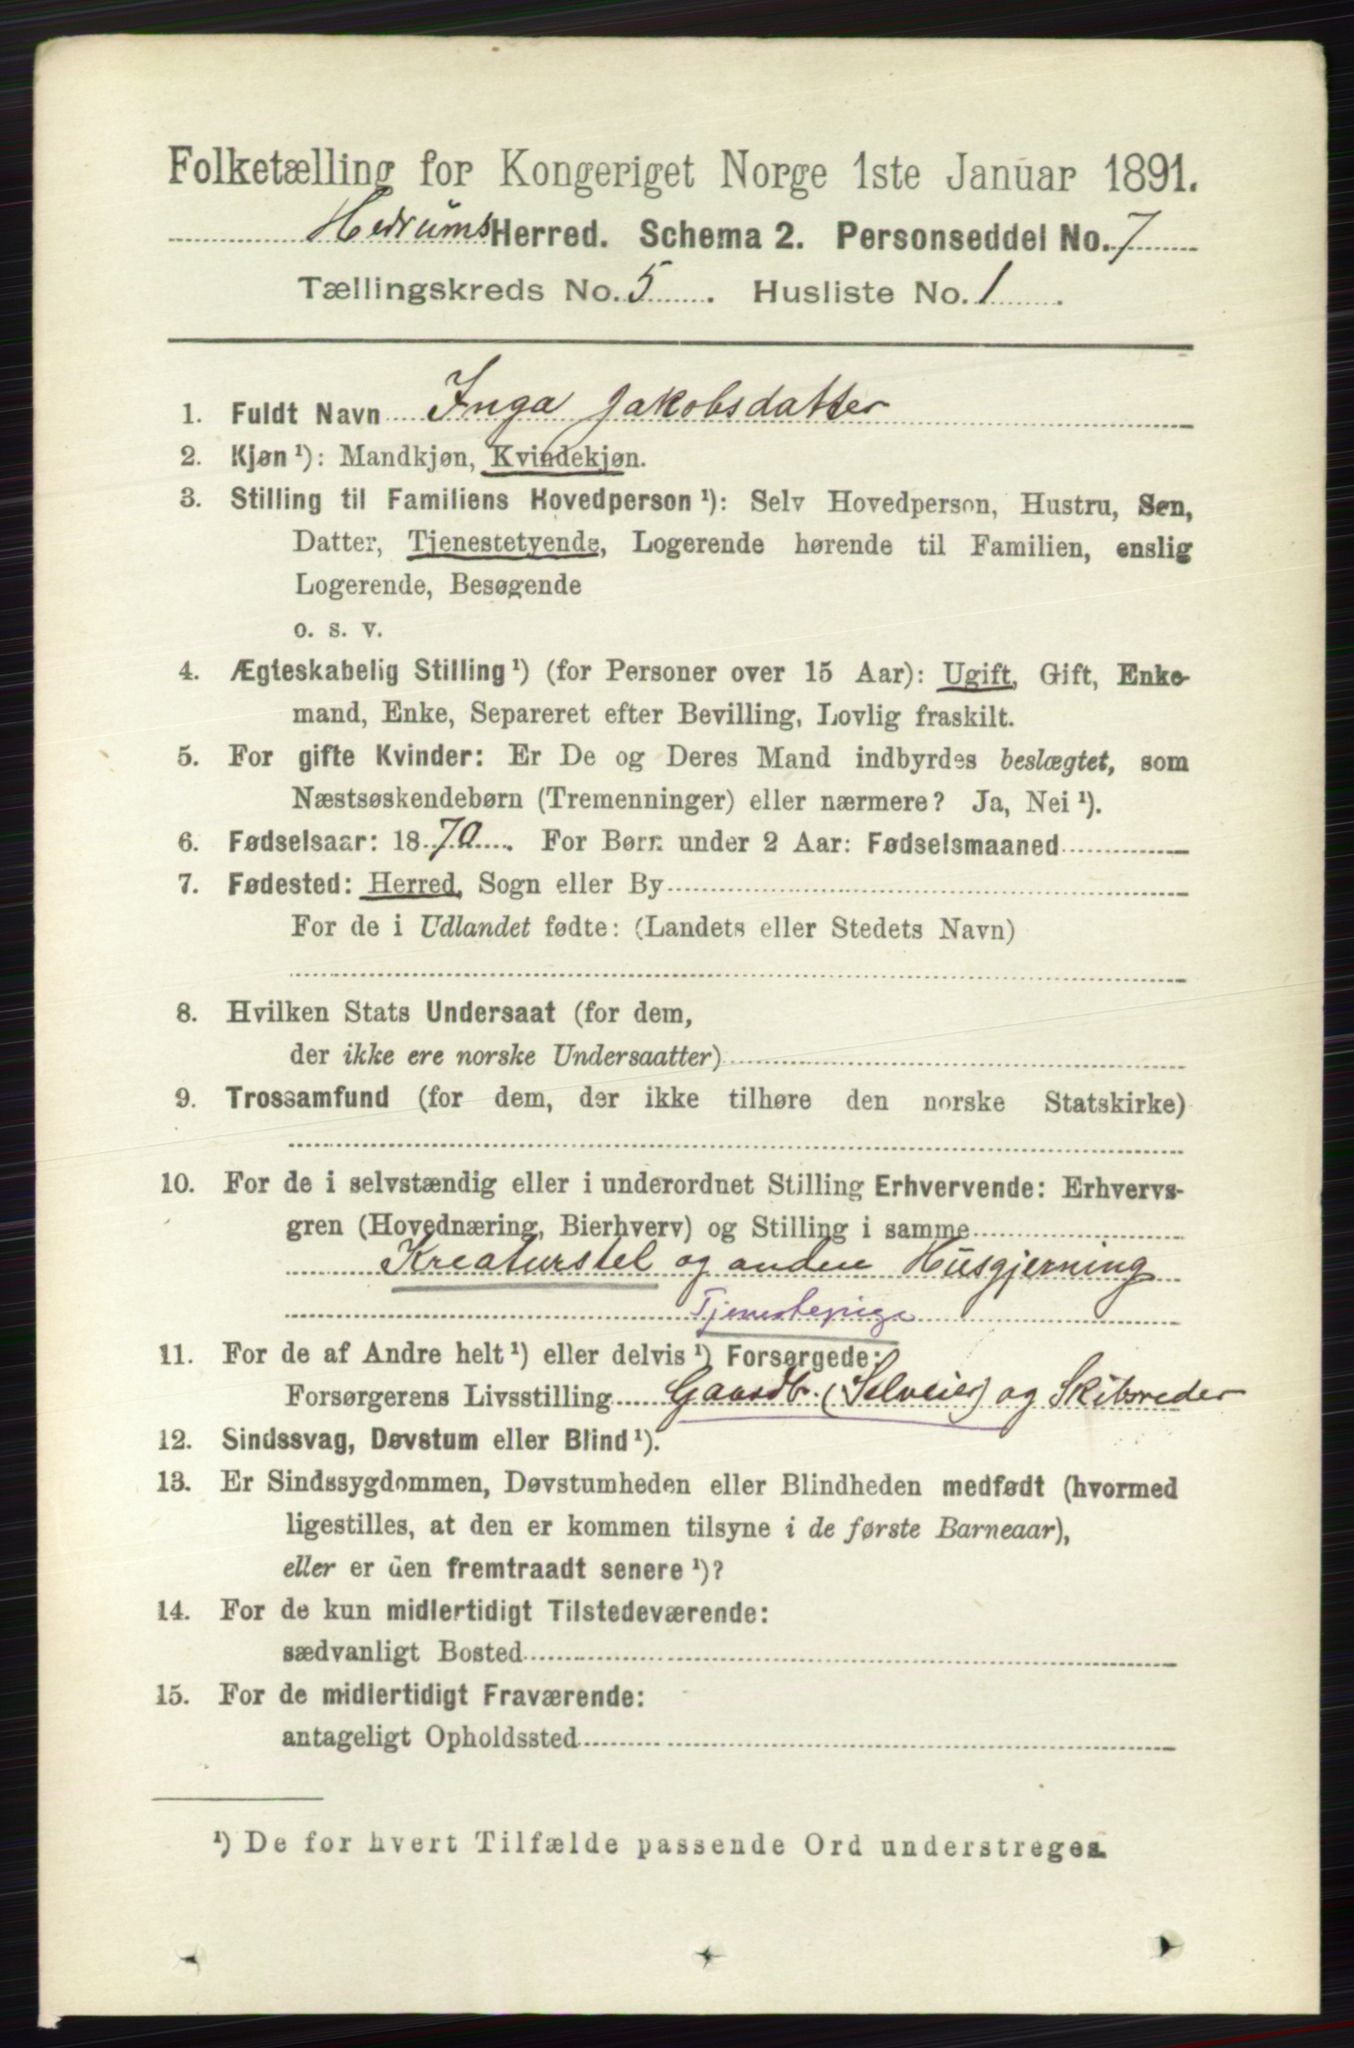 Folketælling for Kongeriget Norge 1ste Januar 1891.
Hedrums Herred. Schema 2. Personseddel No. 7
Tællingskreds No. 5. Husliste No. 1.
1. Fuldt Navn Inga Jakobsdatter
2. Kjøn ¹): Mandkjøn, Kvindekjøn.
3. Stilling til Familiens Hovedperson ¹): Selv Hovedperson, Hustru, Søn,
Datter, Tjenestetyende, Logerende hørende til Familien, enslig
Logerende, Besøgende
o. s. v.
4. Ægteskabelig Stilling ¹) (for Personer over 15 Aar): Ugift, Gift, Enke-
mand, Enke, Separeret efter Bevilling, Lovlig fraskilt.
5. For gifte Kvinder: Er De og Deres Mand indbyrdes beslægtet, som
Næstsøskendebørn (Tremenninger) eller nærmere? Ja, Nei ¹).
6. Fødselsaar: 1870. For Børn under 2 Aar: Fødselsmaaned
7. Fødested: Herred, Sogn eller By
For de i Udlandet fødte: (Landets eller Stedets Navn)
8. Hvilken Stats Undersaat (for dem,
der ikke ere norske Undersaatter)
9. Trossamfund (for dem, der ikke tilhøre den norske Statskirke)
10. For de i selvstændig eller i underordnet Stilling Erhvervende: Erhvervs-
gren (Hovednæring, Bierhverv) og Stilling i samme
Kreaturstel og anden Husgjerning
Tjenestepige
11. For de af Andre helt ¹) eller delvis ¹) Forsørgede:
Forsørgerens Livsstilling Gaardbr. (Selveier) og Skibsreder
12. Sindssvag, Døvstum eller Blind ¹).
13. Er Sindssygdommen, Døvstumheden eller Blindheden medfødt (hvormed
ligestilles, at den er kommen tilsyne i de første Barneaar),
eller er den fremtraadt senere ¹)?
14. For de kun midlertidigt Tilstedeværende:
sædvanligt Bosted
15. For de midlertidigt Fraværende:
antageligt Opholdssted
¹) De for hvert Tilfælde passende Ord understreges.